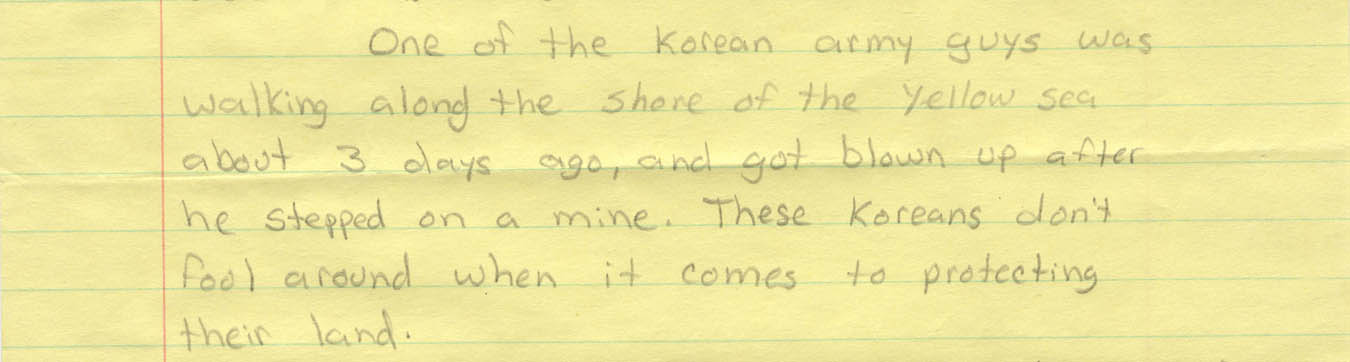 One of the Korean army guys was
walking along the shore of the Yellow sea
about 3 days ago, and got blown up after
he stepped on a mine. These Koreans don't
fool around when it comes to protecting
their land.